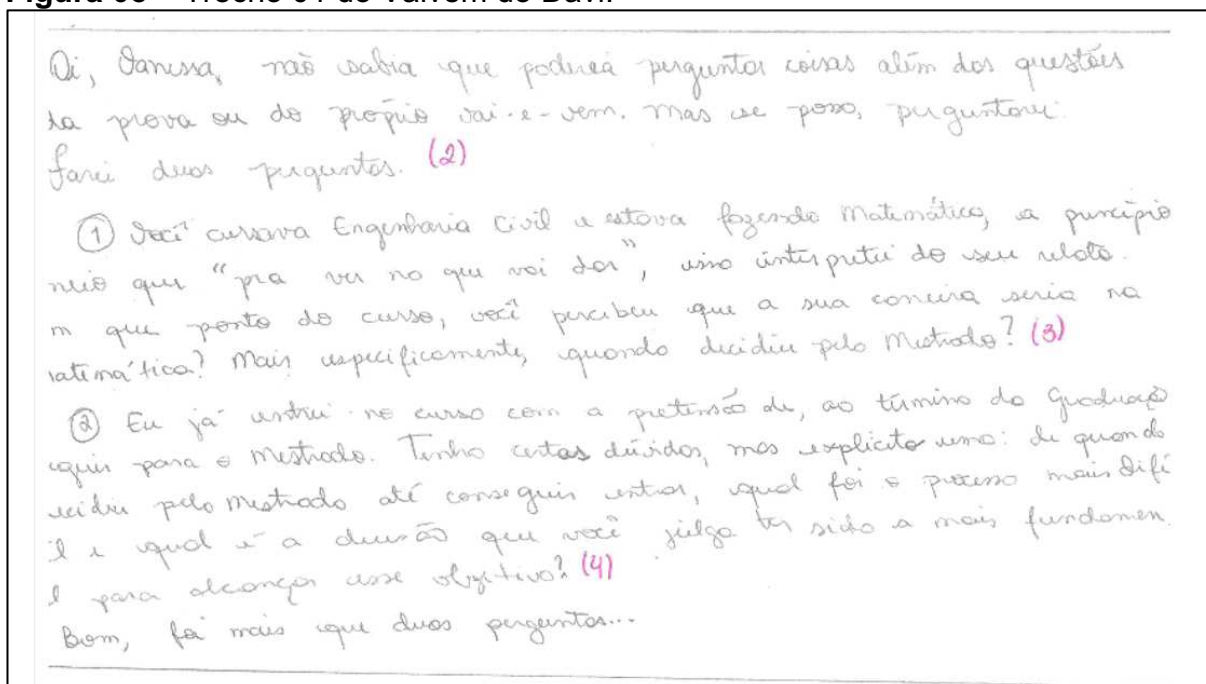 Oi, Vanessa, não sabia que poderia perguntar coisas além das questões
da prova ou do próprio vai-e-vem. Mas se posso, perguntarei.
Farei duas perguntas. (2)
① Você cursava Engenharia Civil e estava fazendo Matemática, a princípio
meio que "pra ver no que vai dar", isso interpretei do seu relato.
m que ponto do curso, você percebeu que a sua carreira seria na
matemática? Mais especificamente, quando decidiu pelo Mestrado? (3)
② Eu já entrei no curso com a pretensão de, ao término da Graduação
seguir para o mestrado. Tenho certas dúvidas, mas explicito uma: de quando
decidiu pelo mestrado até conseguir entrar, qual foi o processo mais difí
il e qual é a decisão que você julga ter sido a mais fundamen
l para alcançar esse objetivo? (4)
Bom, foi mais que duas perguntas...